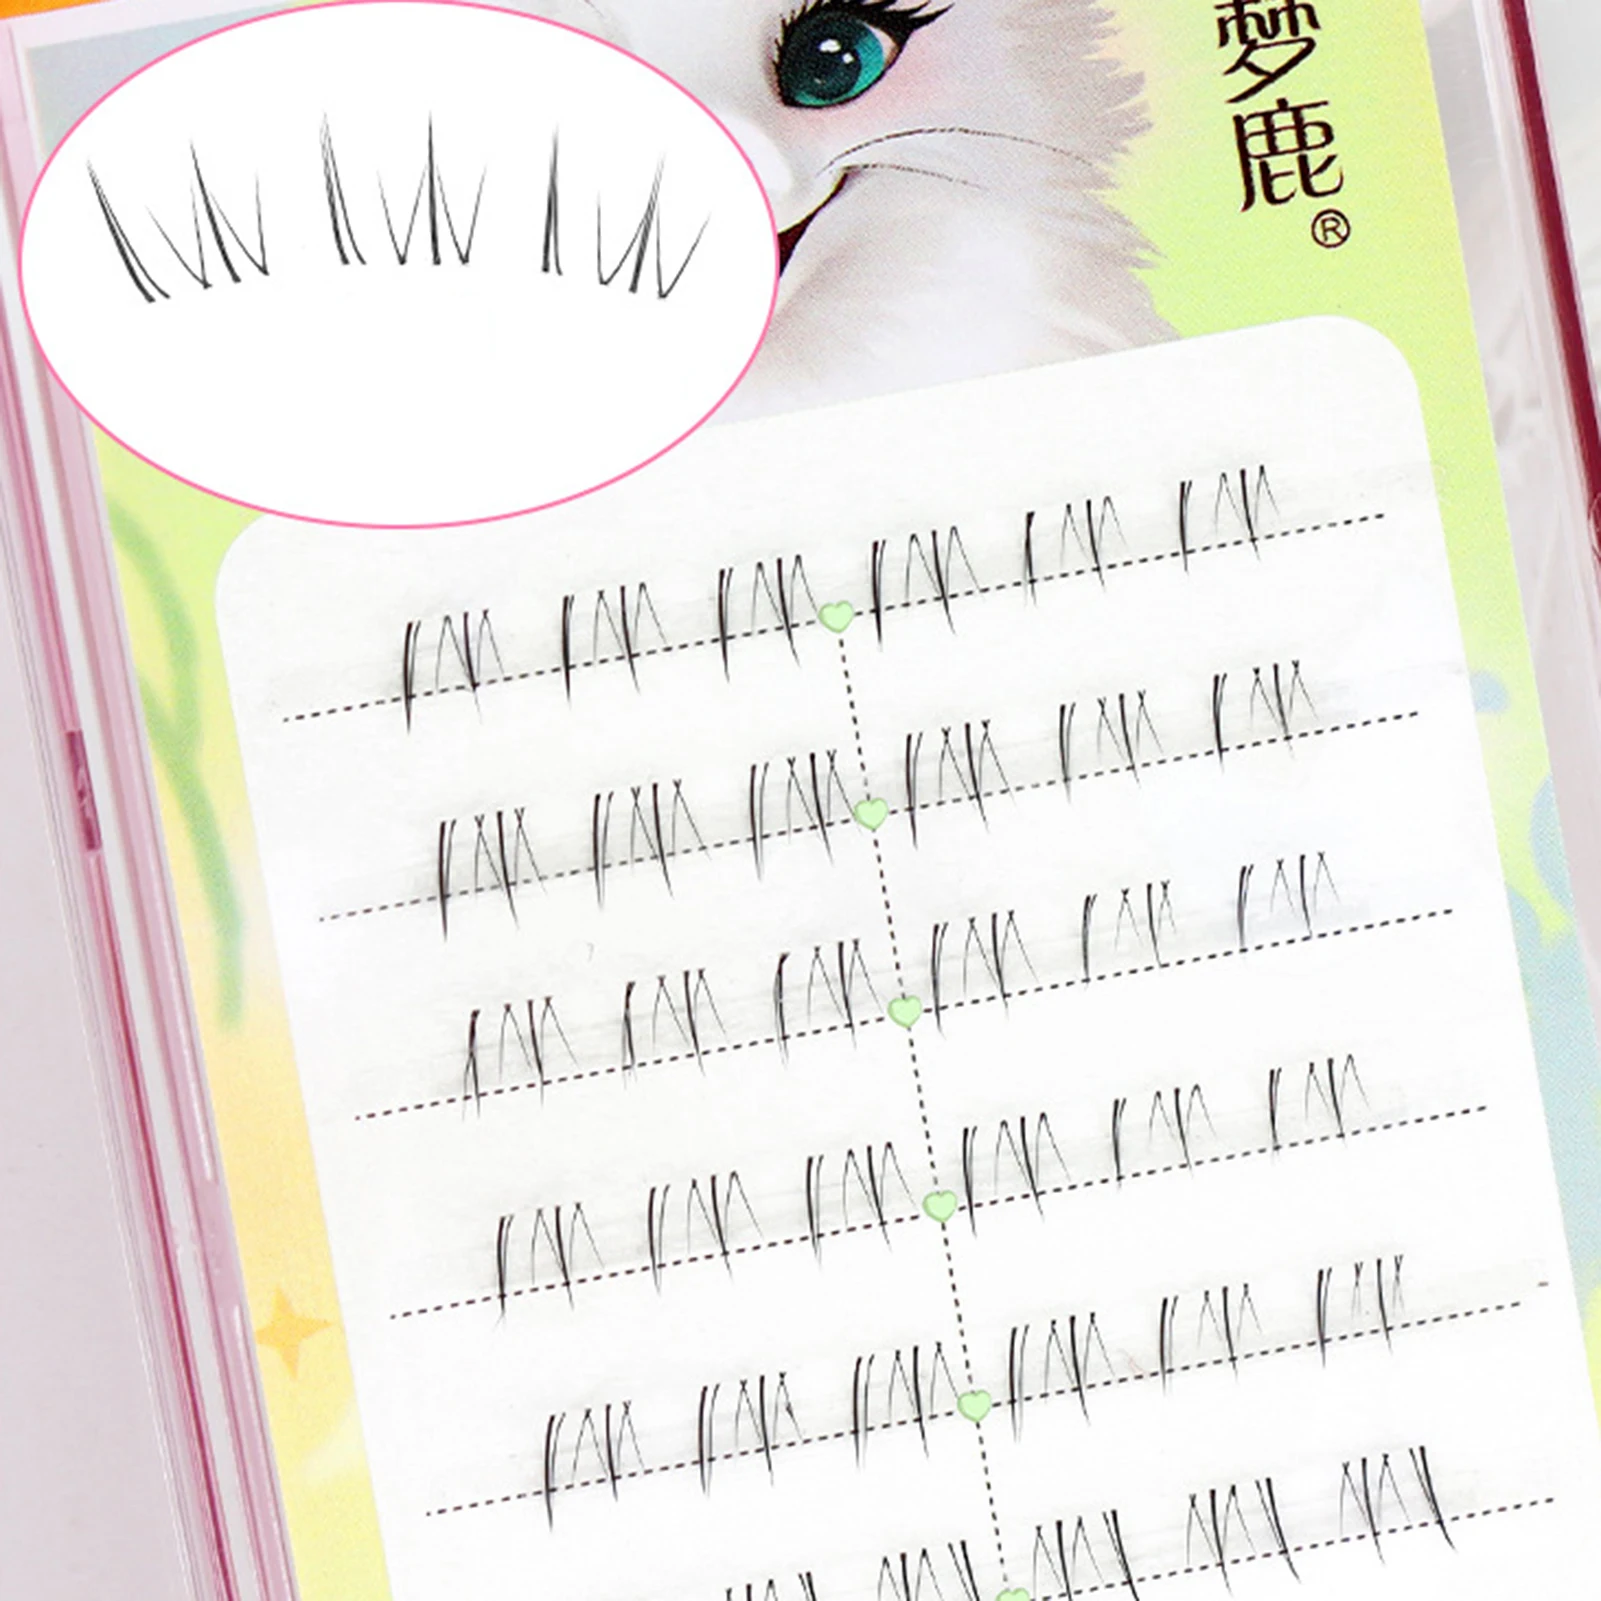 梦
鹿
®